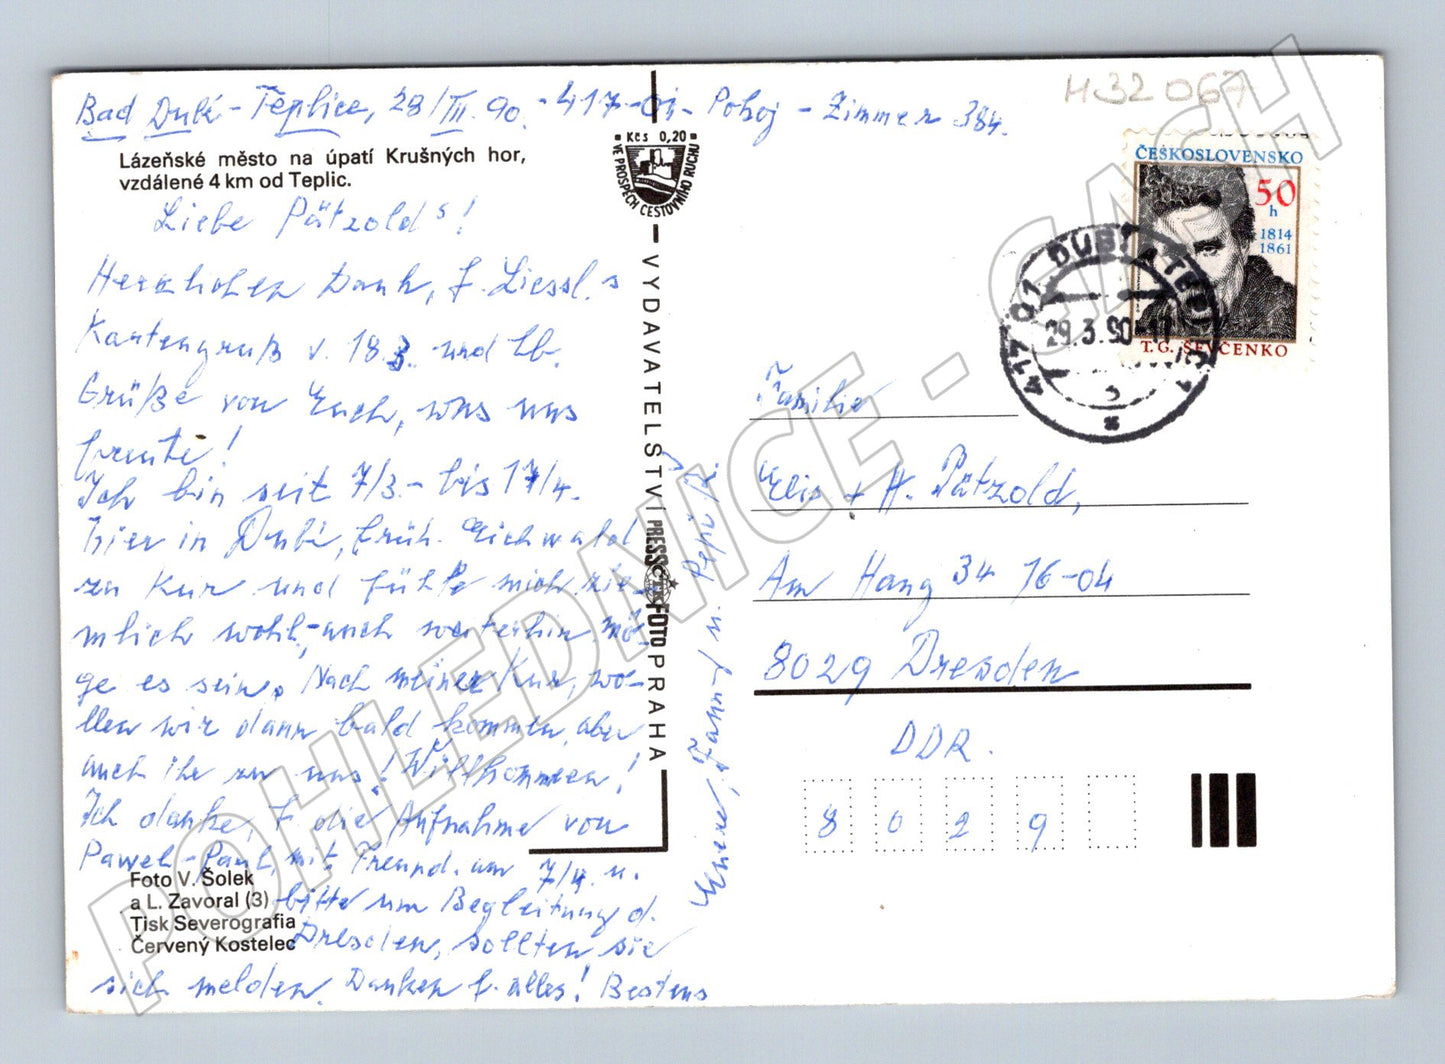 H32067
Bad Dubí - Teplice, 28/III. 90. - 417-01 - Pokoj - Zimmer 384.
Kčs 0,20
VE PROSPĚCH CESTOVNÍHO RUCHU
Lázeňské město na úpatí Krušných hor,
vzdálené 4 km od Teplic.
Liebe Pätzold s!
Herzlichen Dank, f. Liessl. s
Kartengruß v. 18.3. und lb.
Grüße von Euch, was uns
freute!
Ich bin seit 7/3.- bis 17/4.
hier in Dubí, früh. Eichwald
zu Kur und fühle mich zie-
mlich wohl,- auch weiterhin mö-
ge es sein. Nach meiner Kur, wo-
llen wir dann bald kommen, aber
auch ihr zu uns! Willkommen!
Ich danke, f. die Aufnahme von
Pawel - Paul, mit Freund. am 7/4. u.
bitte um Begleitung d.
Dresden, sollten sie
sich melden. Danken f. alles! Bestens
Foto V. Šolek
a L. Zavoral (3)
Tisk Severografia
Červený Kostelec
VYDAVATELSTVÍ PRESSFOTO PRAHA
ČTK
ČESKOSLOVENSKO
50
h
1814
1861
T. G. ŠEVČENKO
417 01 DUBÍ
29.3.90
Familie
+ H. Pätzold,
Am Hang 34 16-04
8029 Dresden
DDR.
8 0 2 9
POHLEDNICE - GASH